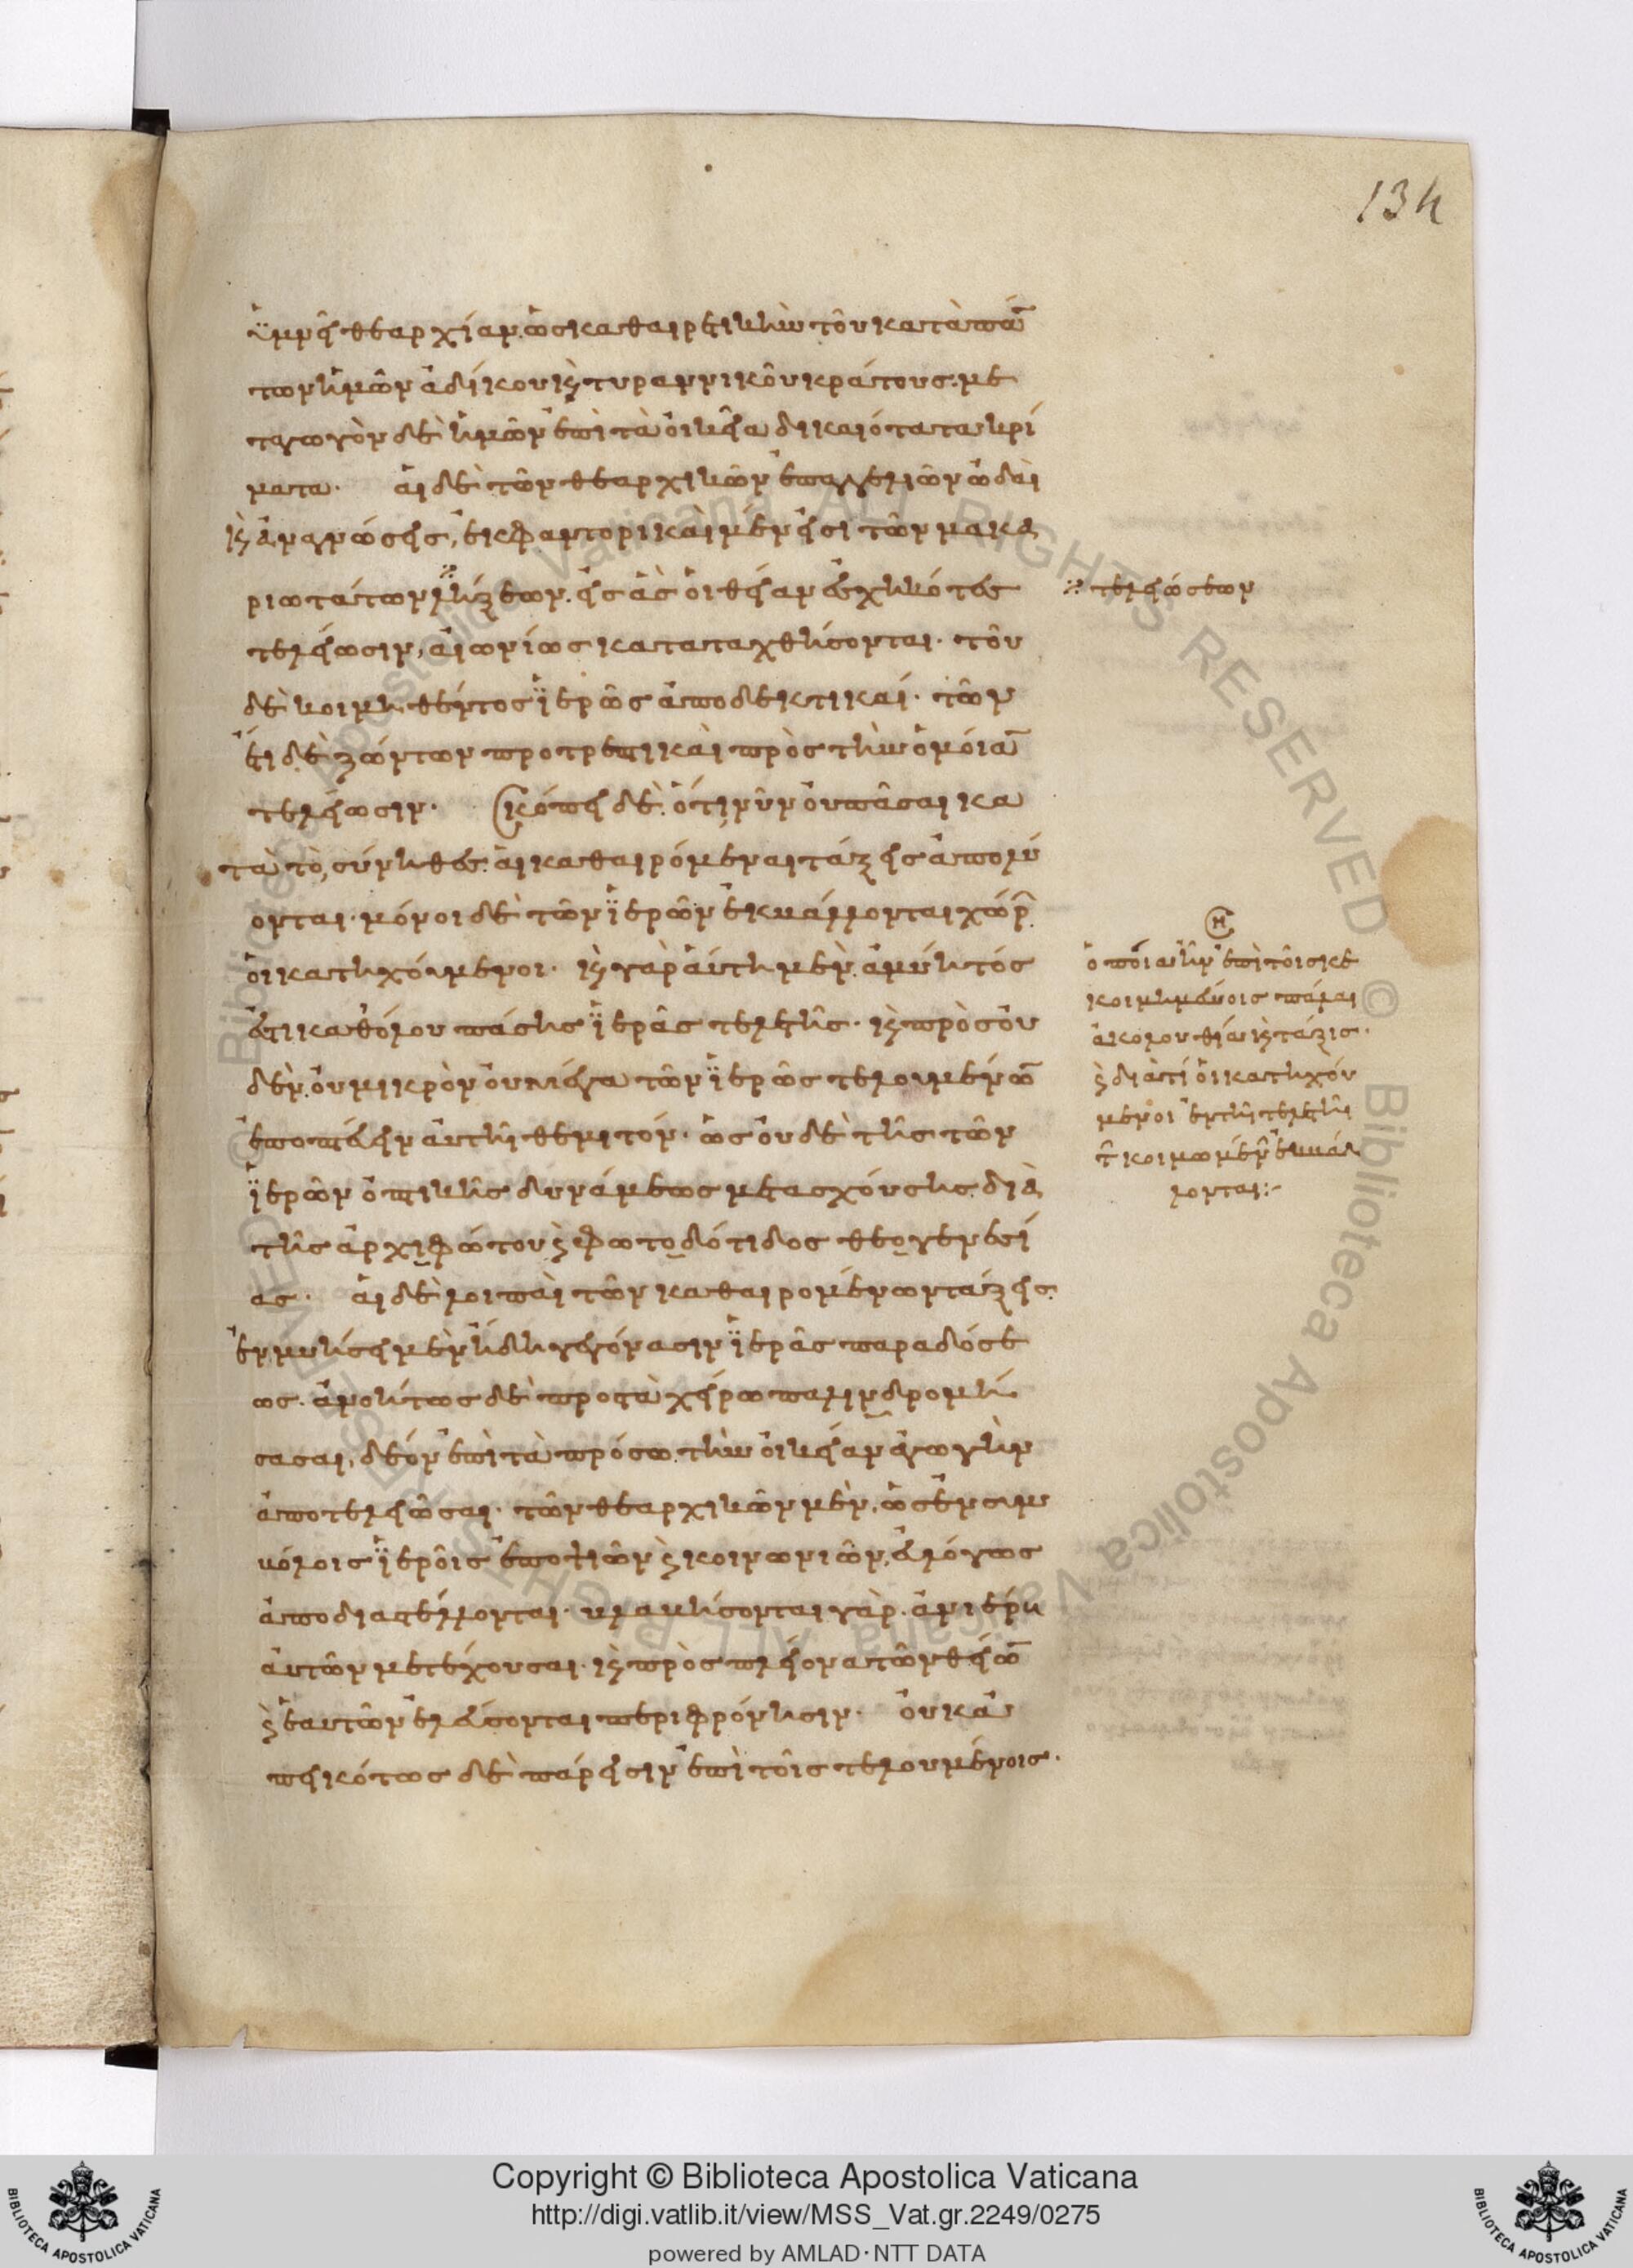 ὑμνεῖ θεαρχίαν, ὡς καθαιρετικὴν τοῦ κατὰ πάν
των ἡμῶν ἀδίκου καὶ τυραννικοῦ κράτους· με
ταγωγὸν δὲ ἡμῶν ἐπὶ τὰ οἰκεῖα δικαιότατα κρί
ματα. αἱ δὲ τῶν θεαρχικῶν ἐπαγγελιῶν ὠδαὶ
καὶ ἀναγνώσεις, ἐκφαντορικαὶ μέν εἰσι τῶν μακα
ριωτάτων λήξεων, εἰς ἃς οἱ θείαν ἐσχηκότες
τελείωσιν, αἰωνίως καταταχθήσονται· τοῦ
δὲ κοιμηθέντος ἱερῶς ἀποδεικτικαί· τῶν
ἔτι δὲ ζώντων προτρεπτικαὶ πρὸς τὴν ὁμοίαν
τελείωσιν. Σκόπει δὲ, ὅτι νῦν οὐ πᾶσαι κα
τὰ τὸ σύνηθες αἱ καθαιρόμεναι τάξεις ἀπολύ
ονται· μόνοι δὲ τῶν ἱερῶν ἐκβάλλονται χώρων
οἱ κατηχούμενοι· καὶ γὰρ αὕτη μὲν ἀμύητός
ἐστι καθόλου πάσης ἱερᾶς τελετῆς· καὶ πρὸς οὐ
δὲν οὐ μικρὸν οὐ μέγα τῶν ἱερῶς τελουμένων
ἐποπτεύειν αὐτῇ θεμιτόν· ὡς οὐδὲ τῆς τῶν
ἱερῶν ὀπτικῆς δυνάμεως μετασχούσης διὰ
τῆς ἀρχιφώτου καὶ φωτοδότιδος θεογενεσί
ας. αἱ δὲ λοιπαὶ τῶν καθαιρομένων τάξεις
ἐν μυήσει μὲν ἤδη γεγόνασιν ἱερᾶς παραδόσε
ως· ἀνοήτως δὲ πρὸς τὰ χείρω παλινδρομή
σασαι, δέον ἐπὶ τὰ πρόσω τὴν οἰκείαν ἀγωγὴν
ἀποτελειῶσαι· τῶν θεαρχικῶν μὲν, ὡς ἐν συμ
βόλοις ἱεροῖς ἐποψιῶν καὶ κοινωνιῶν, εὐλόγως
ἀποδιαστέλλονται· βλαβήσονται γὰρ ἀνιέρως
αὐτῶν μετέχουσαι· καὶ πρὸς πλείονα τῶν θείων
καὶ ἑαυτῶν ἐλεύσονται περιφρόνησιν. οὐκ ἀ
πεικότως δὲ πάρεισιν ἐπὶ τοῖς τελουμένοις·
τελειώσεων
ση
ὁποία ἦν ἐπὶ τοῖς κε
κοιμημένοις πάλαι
ἀκολουθία καὶ τάξις·
καὶ διὰ τί οἱ κατηχού
μενοι ἐν τῇ τελετῇ
τῶν κοιμωμένων ἐκβάλ
λονται:-
134
Copyright © Biblioteca Apostolica Vaticana
http://digi.vatlib.it/view/MSS_Vat.gr.2249/0275
powered by AMLAD·NTT DATA
BIBLIOTECA APOSTOLICA VATICANA
BIBLIOTECA APOSTOLICA VATICANA
© Biblioteca Apostolica Vaticana ALL RIGHTS RESERVED © Biblioteca Apostolica Vaticana ALL RIGHTS RESERVED